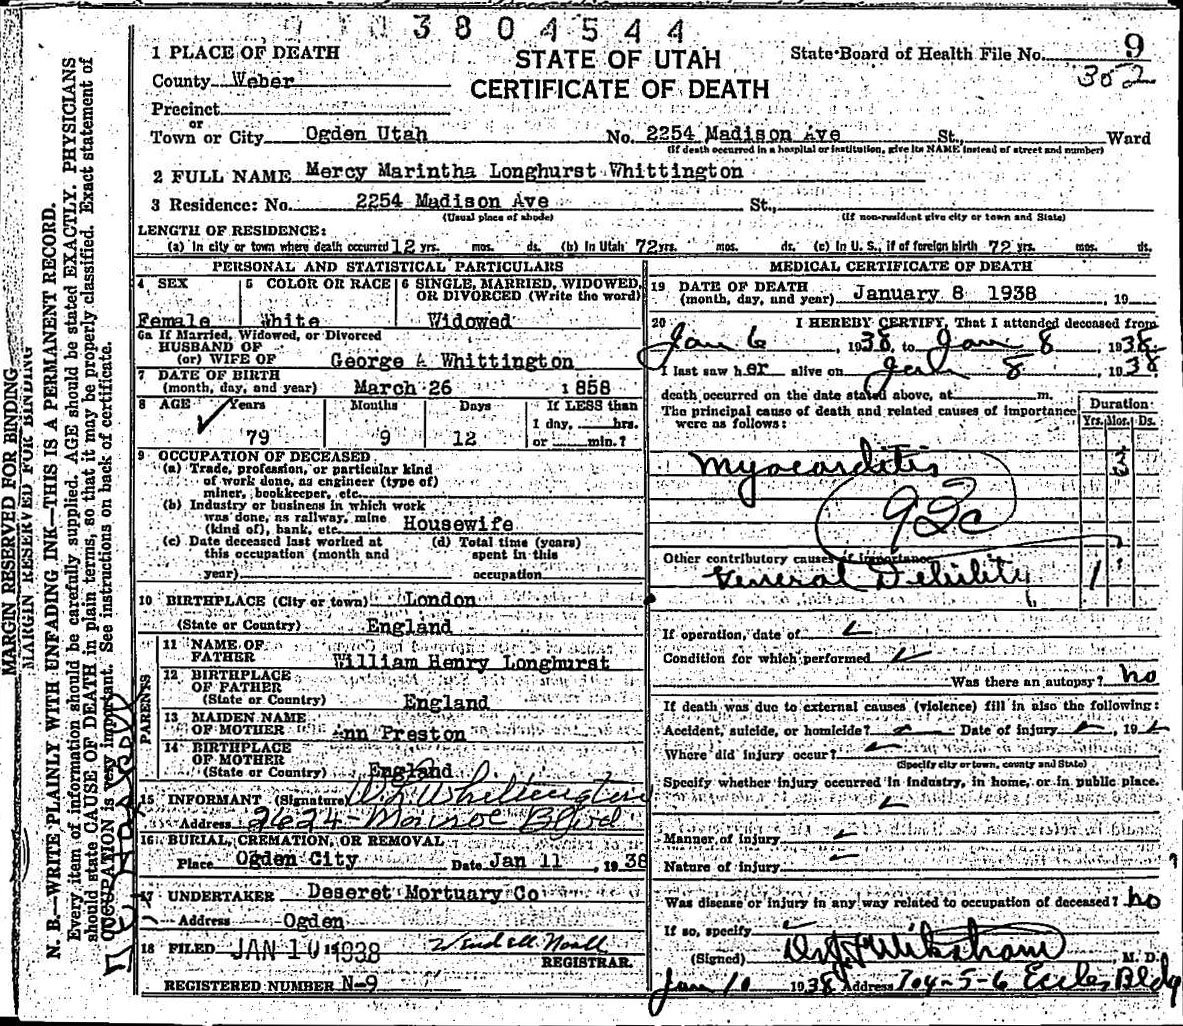 3804544
1 PLACE OF DEATH
STATE OF UTAH
State Board of Health File No. 9
County Weber
CERTIFICATE OF DEATH
352
Precinct
or
Town or City Ogden Utah No. 2254 Madison Ave St., Ward
(If death occurred in a hospital or institution, give its NAME instead of street and number)
2 FULL NAME Mercy Marintha Longhurst Whittington
3 Residence: No. 2254 Madison Ave St.,
(Usual place of abode) (If non-resident give city or town and State)
LENGTH OF RESIDENCE:
(a) in city or town where death occurred 12 yrs. mos. ds. (b) In Utah 72 yrs. mos. ds. (c) In U. S., if of foreign birth 72 yrs. mos. ds.
PERSONAL AND STATISTICAL PARTICULARS
4 SEX 5 COLOR OR RACE 6 SINGLE, MARRIED, WIDOWED, OR DIVORCED (Write the word)
Female White Widowed
6a If Married, Widowed, or Divorced
HUSBAND OF
(or) WIFE OF George A Whittington
7 DATE OF BIRTH
(month, day, and year) March 26 1858
8 AGE Years Months Days If LESS than
1 day, hrs.
79 9 12 or min.?
9 OCCUPATION OF DECEASED
(a) Trade, profession, or particular kind
of work done, as engineer (type of)
miner, bookkeeper, etc.
(b) Industry or business in which work
was done, as railway, mine
(kind of), bank, etc. Housewife
(c) Date deceased last worked at (d) Total time (years)
this occupation (month and spent in this
year) occupation
10 BIRTHPLACE (City or town) London
(State or Country) England
PARENTS
11 NAME OF
FATHER William Henry Longhurst
12 BIRTHPLACE
OF FATHER
(State or Country) England
13 MAIDEN NAME
OF MOTHER Ann Preston
14 BIRTHPLACE
OF MOTHER
(State or Country) England
15 INFORMANT (Signature) Whittington
Address 2624 Monroe Blvd
16 BURIAL, CREMATION, OR REMOVAL
Place Ogden City Date Jan 11, 1938
17 UNDERTAKER Deseret Mortuary Co
Address Ogden
18 FILED JAN 10 1938
REGISTRAR.
REGISTERED NUMBER N-9
MEDICAL CERTIFICATE OF DEATH
19 DATE OF DEATH
(month, day, and year) January 8 1938, 19
20 I HEREBY CERTIFY, That I attended deceased from
Jan 6, 1938, to Jan 8, 1938.
I last saw her alive on Jan 8, 1938
death occurred on the date stated above, at m.
The principal cause of death and related causes of importance
were as follows:
Duration:
Yrs. Mos. Ds.
Myocarditis 3
92c
Other contributory causes of importance
General Debility 1
If operation, date of
Condition for which performed
Was there an autopsy? no
If death was due to external causes (violence) fill in also the following:
Accident, suicide, or homicide? Date of injury, 19
Where did injury occur?
(Specify city or town, county and State)
Specify whether injury occurred in industry, in home, or in public place.
Manner of injury
Nature of injury
Was disease or injury in any way related to occupation of deceased? no
If so, specify
(Signed) M. D.
Jan 10 1938 Address 704-5-6 Eccles Bldg
MARGIN RESERVED FOR BINDING
MARGIN RESERVED FOR BINDING
N. B.—WRITE PLAINLY WITH UNFADING INK—THIS IS A PERMANENT RECORD.
Every item of information should be carefully supplied. AGE should be stated EXACTLY. PHYSICIANS
should state CAUSE OF DEATH in plain terms, so that it may be properly classified. Exact statement of
OCCUPATION is very important. See instructions on back of certificate.